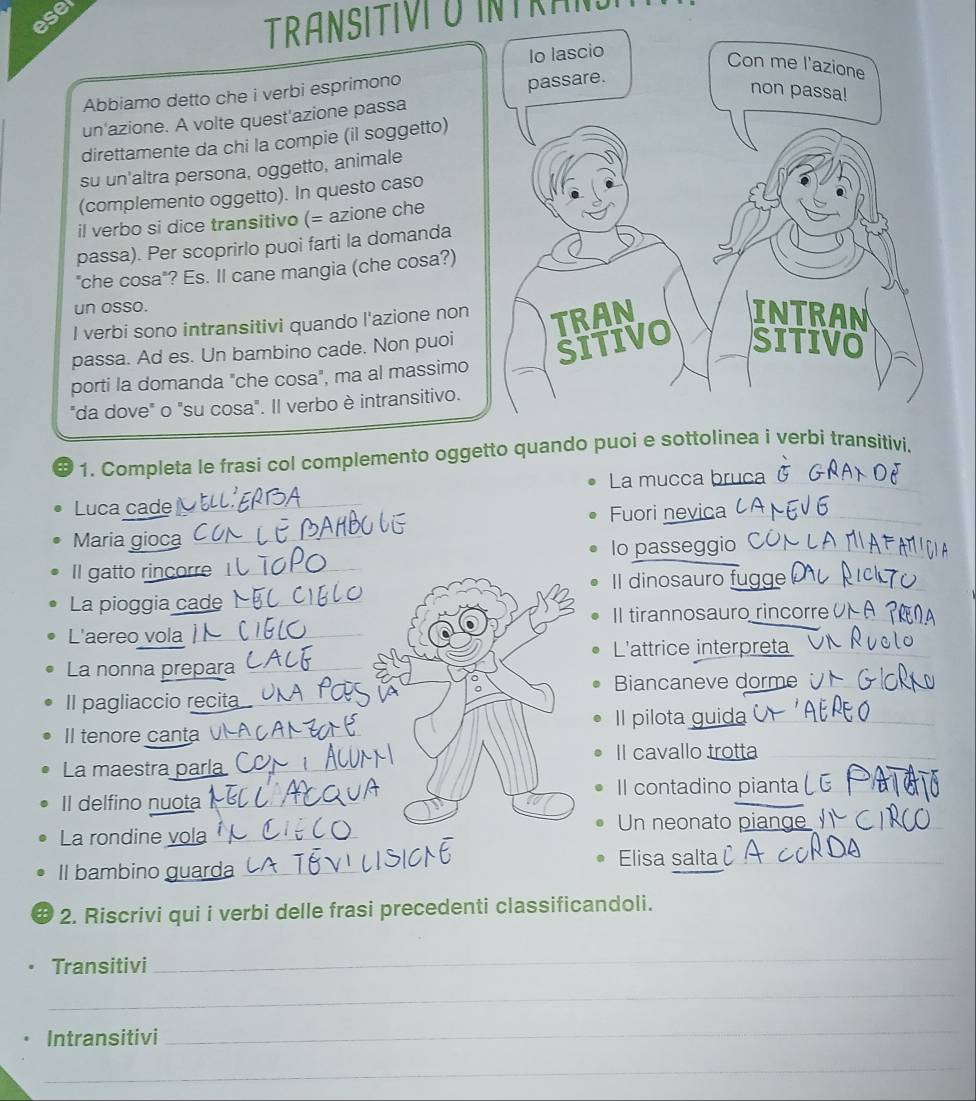 ese
TRANSITIVI O
Abbiamo detto che i verbi esprimono
un'azione. A volte quest'azione passa
direttamente da chi la compie (il soggetto)
su un'altra persona, oggetto, animale
(complemento oggetto). In questo caso
il verbo si dice transitivo (= azione che
passa). Per scoprirlo puoi farti la domanda
"che cosa"? Es. Il cane mangia (che cosa?)
un osso.
I verbi sono intransitivi quando l'azione non
passa. Ad es. Un bambino cade. Non puoi
porti la domanda "che cosa", ma al massimo
"da dove" o "su cosa". Il verbo è intransitivo.
Io lascio
passare.
Con me l'azione
non passa!
TRAN
SITIVO
INTRAN
SITIVO
1. Completa le frasi col complemento oggetto quando puoi e sottolinea i verbi transitivi.
• Luca cade NELL'ERBA
• Maria gioca CON LE BAMBOLE
• Il gatto rincorre IL TOPO
• La pioggia cade NEL CIELO
• L'aereo vola IN CIELO
• La nonna prepara
• Il pagliaccio recita UNA POESIA
• Il tenore canta UNA CANZONE
• La maestra parla CON I ALUNNI
• Il delfino nuota NELL'ACQUA
• La rondine vola IN CIELO
• Il bambino guarda LA TEVILISIONE
• La mucca bruca È GRANDE
• Fuori nevica LA NEVE
• Io passeggio CON LA MIA FAMIGIA
• Il dinosauro fugge DAL
• Il tirannosauro rincorre UNA PREDA
• L'attrice interpreta UN RUOLO
• Biancaneve dorme UN GIORNO
• Il pilota guida UN'AEREO
• Il cavallo trotta
• Il contadino pianta LE PATATE
• Un neonato piange IN CIRCO
• Elisa salta LA CORDA
2. Riscrivi qui i verbi delle frasi precedenti classificandoli.
• Transitivi
• Intransitivi